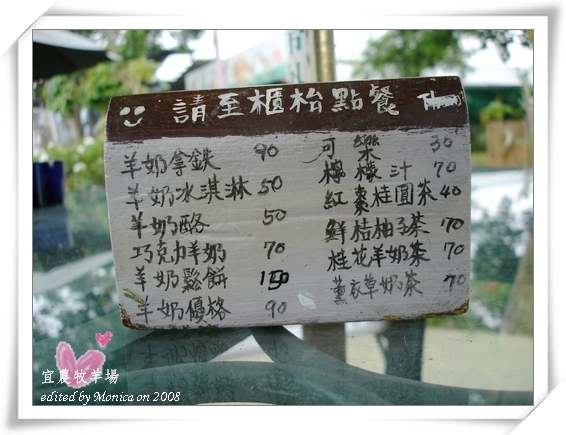 請至櫃枱點餐
羊奶拿鉄 90
羊奶冰淇淋 50
羊奶酪 50
巧克力羊奶 70
羊奶鬆餅 150
羊奶優格 90
可樂 30
檸檬汁 70
紅棗桂圓茶 40
鮮桔柚子茶 70
桂花羊奶茶 70
薰衣草奶茶 70
宜農牧羊場
edited by Monica on 2008